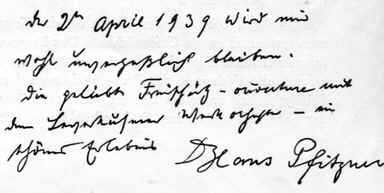 Der 2te April 1939 wird mir
wohl unvergeßlich bleiben.
Die geliebte Freischütz-ouverture mit
dem Leverkusener Werkorchester – ein
schönes Erlebnis Dr Hans Pfitzner